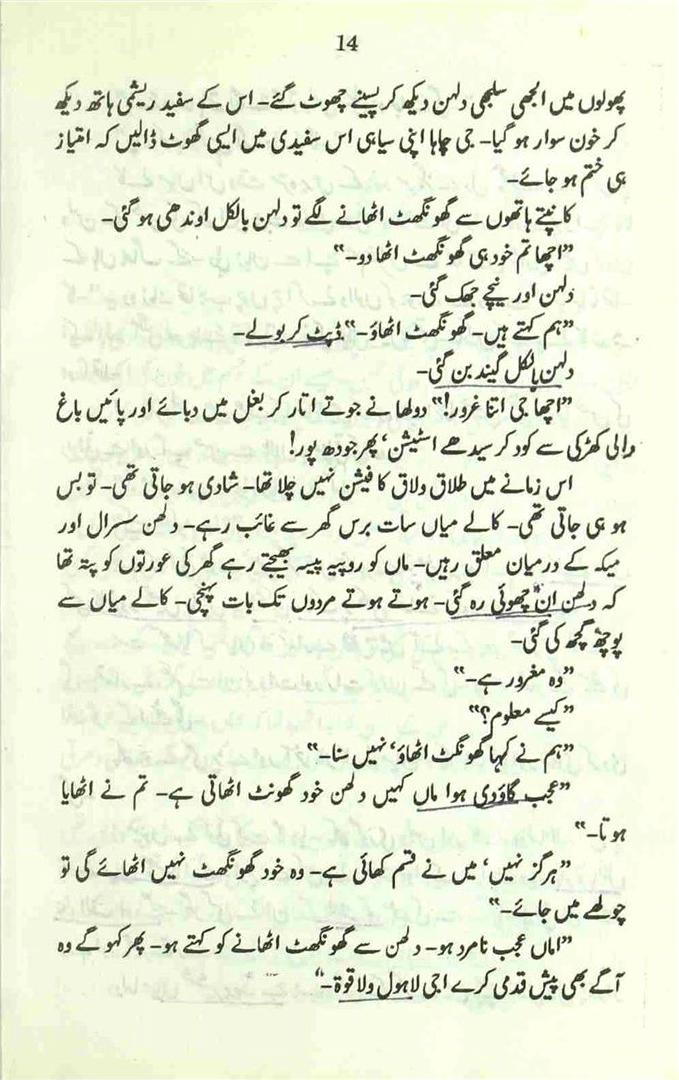 14
پھولوں میں الجھی سلجھی دلہن دیکھ کر پسینے چھوٹ گئے۔ اس کے سفید ریشمی ہاتھ دیکھ
کر خون سوار ہو گیا۔ جی چاہا اپنی سیاہی اس سفیدی میں ایسی گھوٹ ڈالیں کہ امتیاز
ہی ختم ہو جائے۔
کانپتے ہاتھوں سے گھونگھٹ اٹھانے لگے تو دلہن بالکل اوندھی ہو گئی۔
”اچھا تم خود ہی گھونگھٹ اٹھا دو۔“
دلہن اور نیچے جھک گئی۔
”ہم کہتے ہیں۔ گھونگھٹ اٹھاؤ۔“ ڈپٹ کر بولے۔
دلہن بالکل گیند بن گئی۔
”اچھا جی اتنا غرور!“ دولھا نے جوتے اتار کر بغل میں دبائے اور پائیں باغ
والی کھڑکی سے کود کر سیدھے اسٹیشن‘ پھر جودھ پور!
اس زمانے میں طلاق ولاق کا فیشن نہیں چلا تھا۔ شادی ہو جاتی تھی۔ تو بس
ہو ہی جاتی تھی۔ کالے میاں سات برس گھر سے غائب رہے۔ دلھن سسرال اور
میکہ کے درمیان معلق رہیں۔ ماں کو روپیہ پیسہ بھیجتے رہے گھر کی عورتوں کو پتہ تھا
کہ دلھن ان چھوئی رہ گئی۔ ہوتے ہوتے مردوں تک بات پہنچی۔ کالے میاں سے
پوچھ گچھ کی گئی۔
”وہ مغرور ہے۔“
”کیسے معلوم؟“
”ہم نے کہا گھونگٹ اٹھاؤ‘ نہیں سنا۔“
”عجب گاؤدی ہوا ماں کہیں دلھن خود گھونٹ اٹھاتی ہے۔ تم نے اٹھایا
ہوتا۔“
”ہرگز نہیں‘ میں نے قسم کھائی ہے۔ وہ خود گھونگھٹ نہیں اٹھائے گی تو
چولھے میں جائے۔“
”اماں عجب نامرد ہو۔ دلھن سے گھونگھٹ اٹھانے کو کہتے ہو۔ پھر کہو گے وہ
آگے بھی پیش قدمی کرے اجی لاہول ولا قوۃ۔“